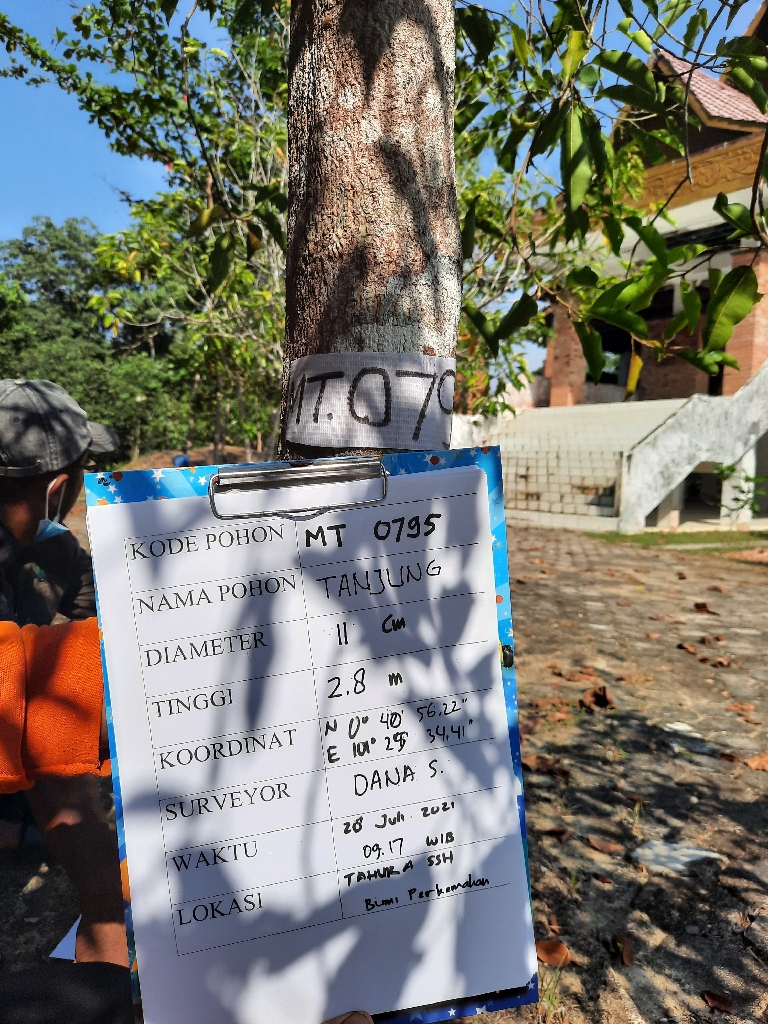 MT.079
KODE POHON MT 0795
NAMA POHON TANJUNG
DIAMETER 11 Cm
TINGGI 2.8 m
KOORDINAT N 0° 40' 56.22"
E 101° 25' 34.41"
SURVEYOR DANA S.
WAKTU 28 Juli 2021
09.17 WIB
LOKASI TAHURA SSH
Bumi Perkemahan